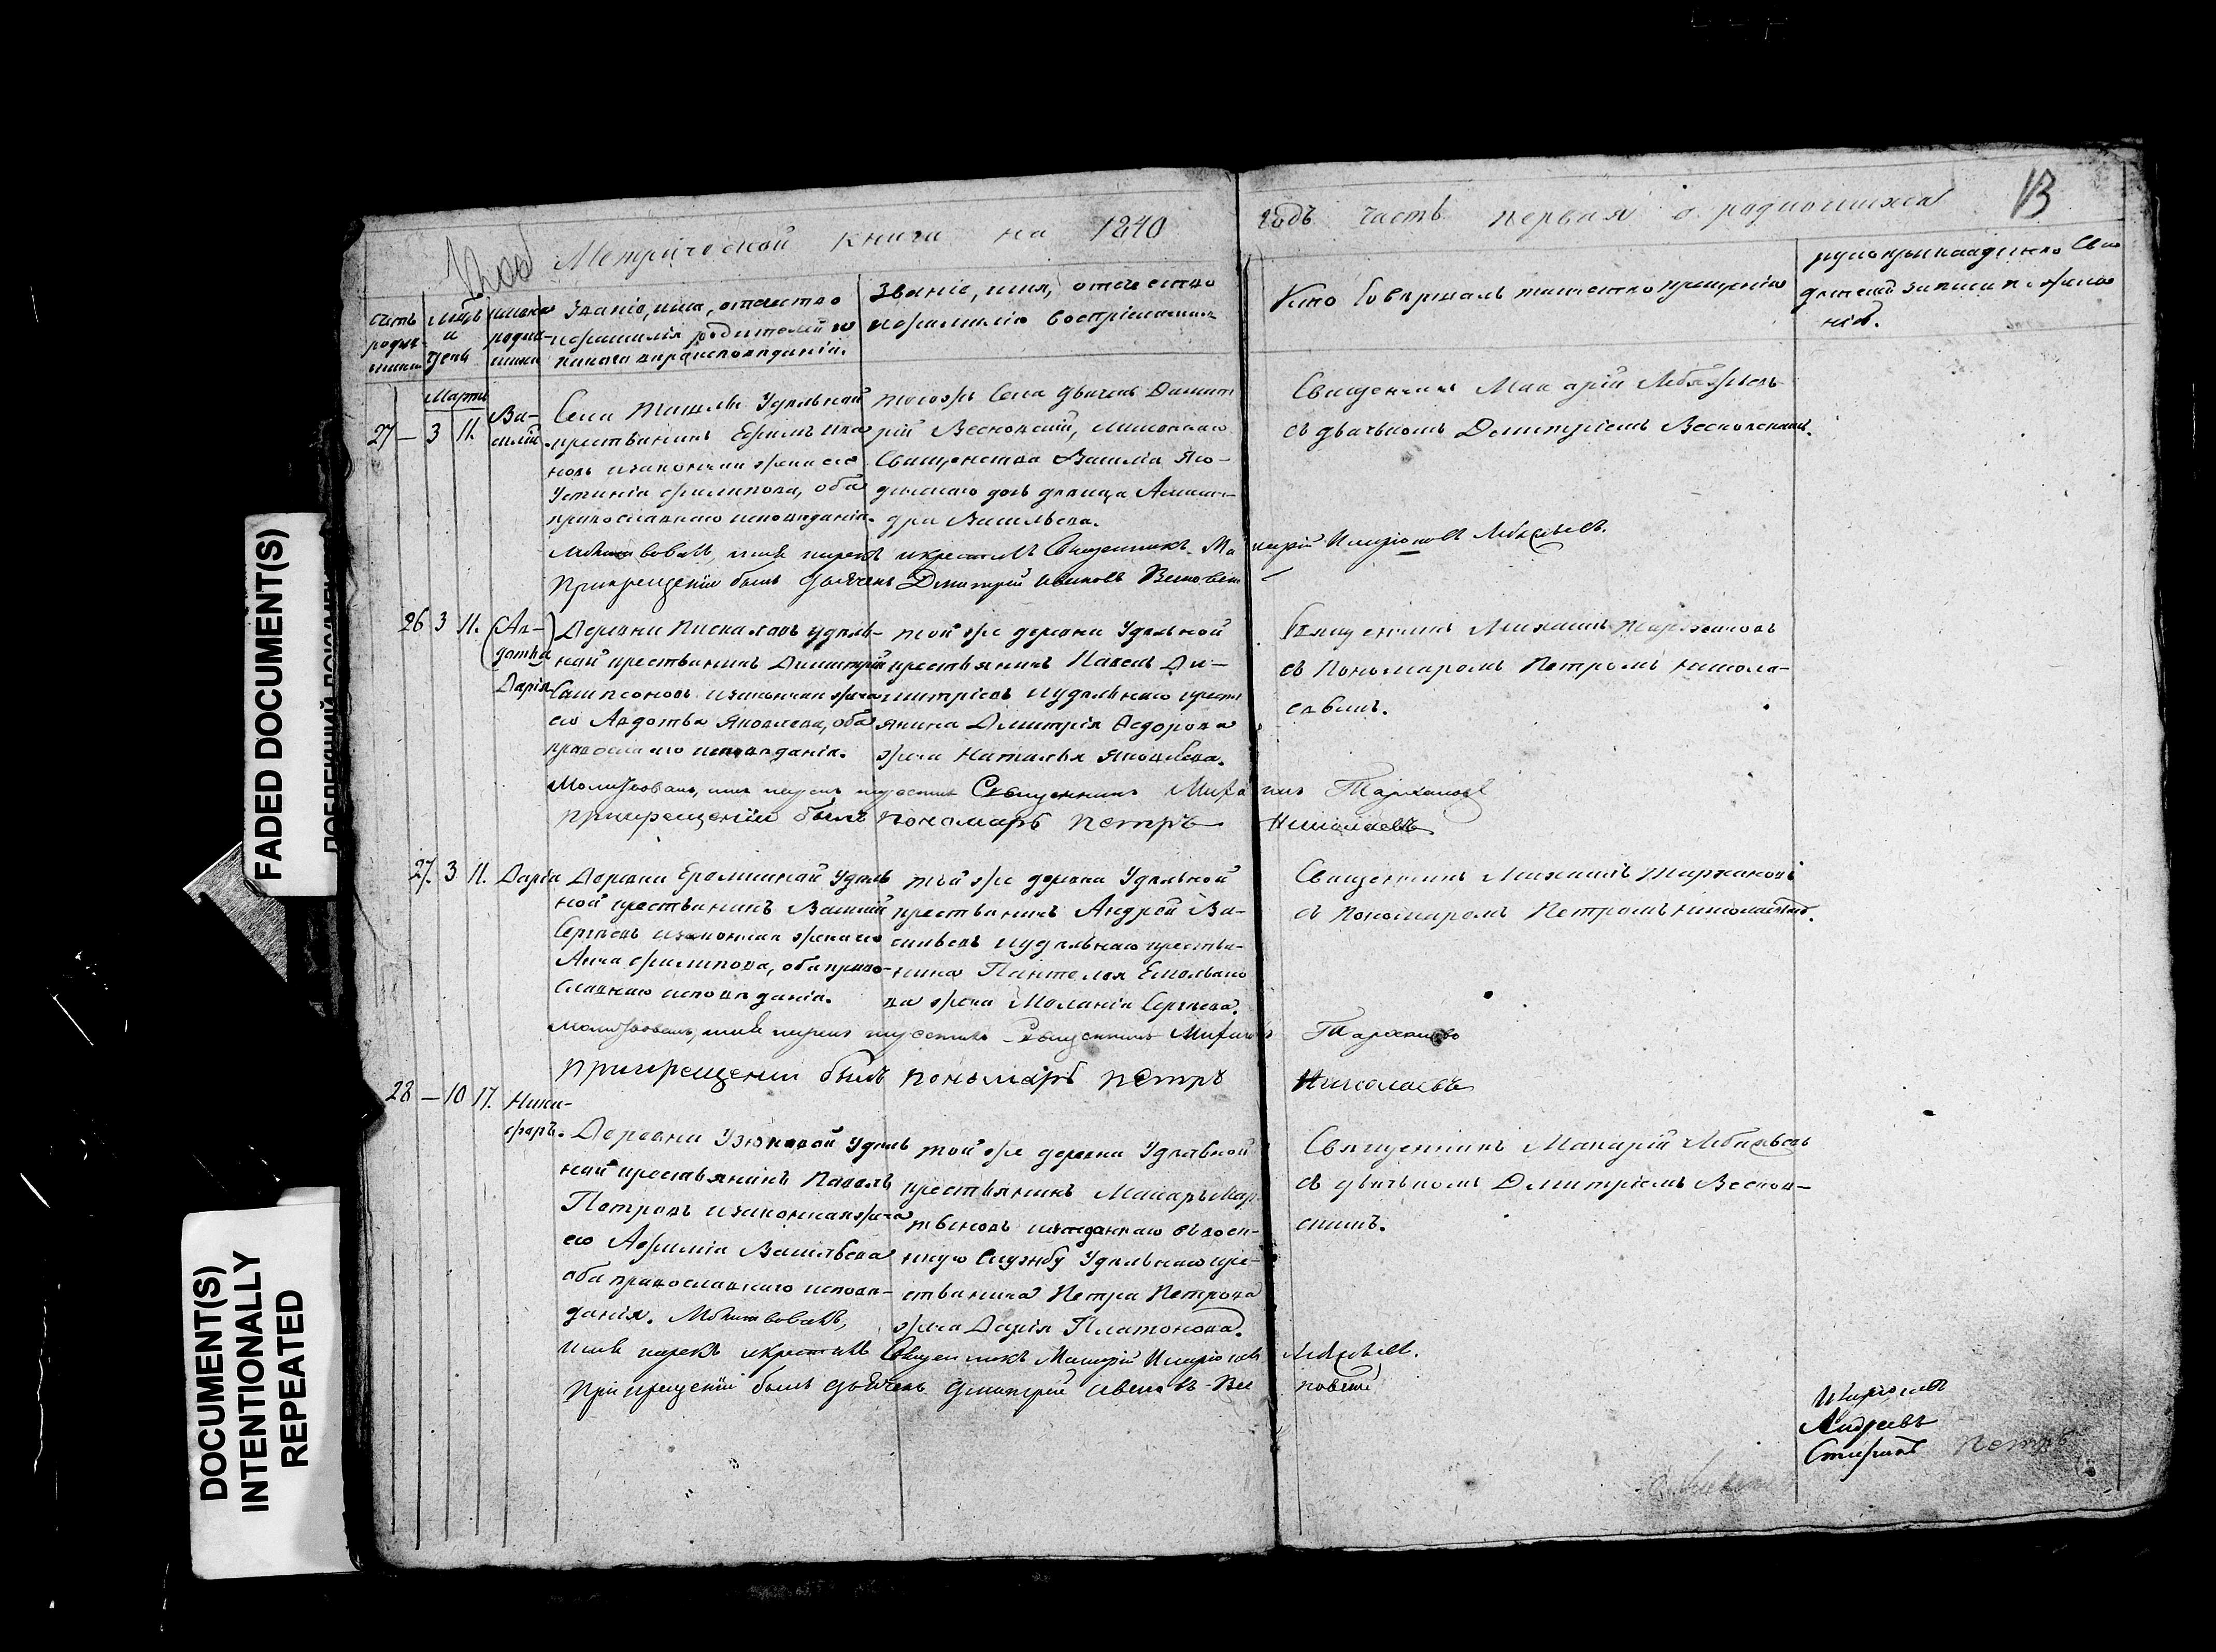 Метрической книги на 1840
годъ часть первая о родившихся
13
счетъ родив- шихся
мцъ и день
имена родив- шихся
Званіе, имя, отчество и фамилія родителей и какого вѣроисповѣданія.
Званіе, имя, отчество и фамилія воспріемник
Кто совершалъ таинство крещенія
рукоприкладство сви дѣтелей записи по жела нію.
Мартъ
27 — 3 11. Ва- силій.
Села Удѣльной
крестьянинъ Ефимъ Ива
новъ и законная жена его
Устинія Филипова, оба
православнаго исповѣданія.
тогожъ Села дьячекъ Димит
рій Весновскій,
Священника Василія
дочь дѣвица
Васильева.
Священникъ Макарій
съ дьячкомъ Димитріемъ Весновскимъ.
Молитвовалъ, имя нарекъ и крестилъ Священникъ Ма карій Иларіоновъ
При крещеніи былъ дьячекъ Дмитрій Ивановъ
26 3 11. (Ав- дотья) Дарія
Деревни удѣль-
ной крестьянинъ Димитрій
Сампсоновъ и законная жена
его Авдотья Яковлева, оба
православнаго исповѣданія.
той же деревни Удѣльной
крестьянинъ Павелъ Ди-
митріевъ и удѣльнаго кресть
янина Димитрія Ѳедорова
жена Наталья Яковлева.
Священникъ Михаилъ Тархановъ
съ Пономаромъ Петромъ Никола-
евымъ.
Молитвовалъ, имя нарекъ и крестилъ Священникъ Миха илъ Тархановъ
При крещеніи былъ пономарь Петръ Николаевъ
27. 3 11. Дарія
Деревни Удѣль
ной крестьянинъ Василій
Сергѣевъ и законная жена его
Анна Филипова, оба право-
славнаго исповѣданія.
той же деревни Удѣльной
крестьянинъ Андрей Ва-
сильевъ и удѣльнаго крестья-
нина Пантелея Емельяно
ва жена Маланія Сергѣева.
Священникъ Михаилъ Тархановъ
съ Пономаромъ Петромъ Николаевымъ.
Молитвовалъ, имя нарекъ и крестилъ Священникъ Михаилъ Тархановъ
При крещеніи былъ пономарь Петръ Николаевъ
28 — 10 17. Ники- форъ.
Деревни Узюковой Удѣль
ной крестьянинъ Павелъ
Петровъ и законная жена
его Афимія Васильева
оба православнаго исповѣ-
данія. Молитвовалъ,
той же деревни Удѣльной
крестьянинъ Макаръ Мар
тыновъ и отданнаго въ воен-
ную службу Удѣльнаго кре-
стьянина Петра Петрова
жена Дарія Платонова.
Священникъ Макарій
съ дьячкомъ Димитріемъ Веснов-
скимъ.
имя нарекъ и крестилъ Священникъ Макарій Иларіоновъ
При крещеніи былъ дьячекъ Дмитрій Ивановъ Вес новскій
Андреевъ
Петръ
FADED DOCUMENT(S)
DOCUMENT(S)
INTENTIONALLY
REPEATED